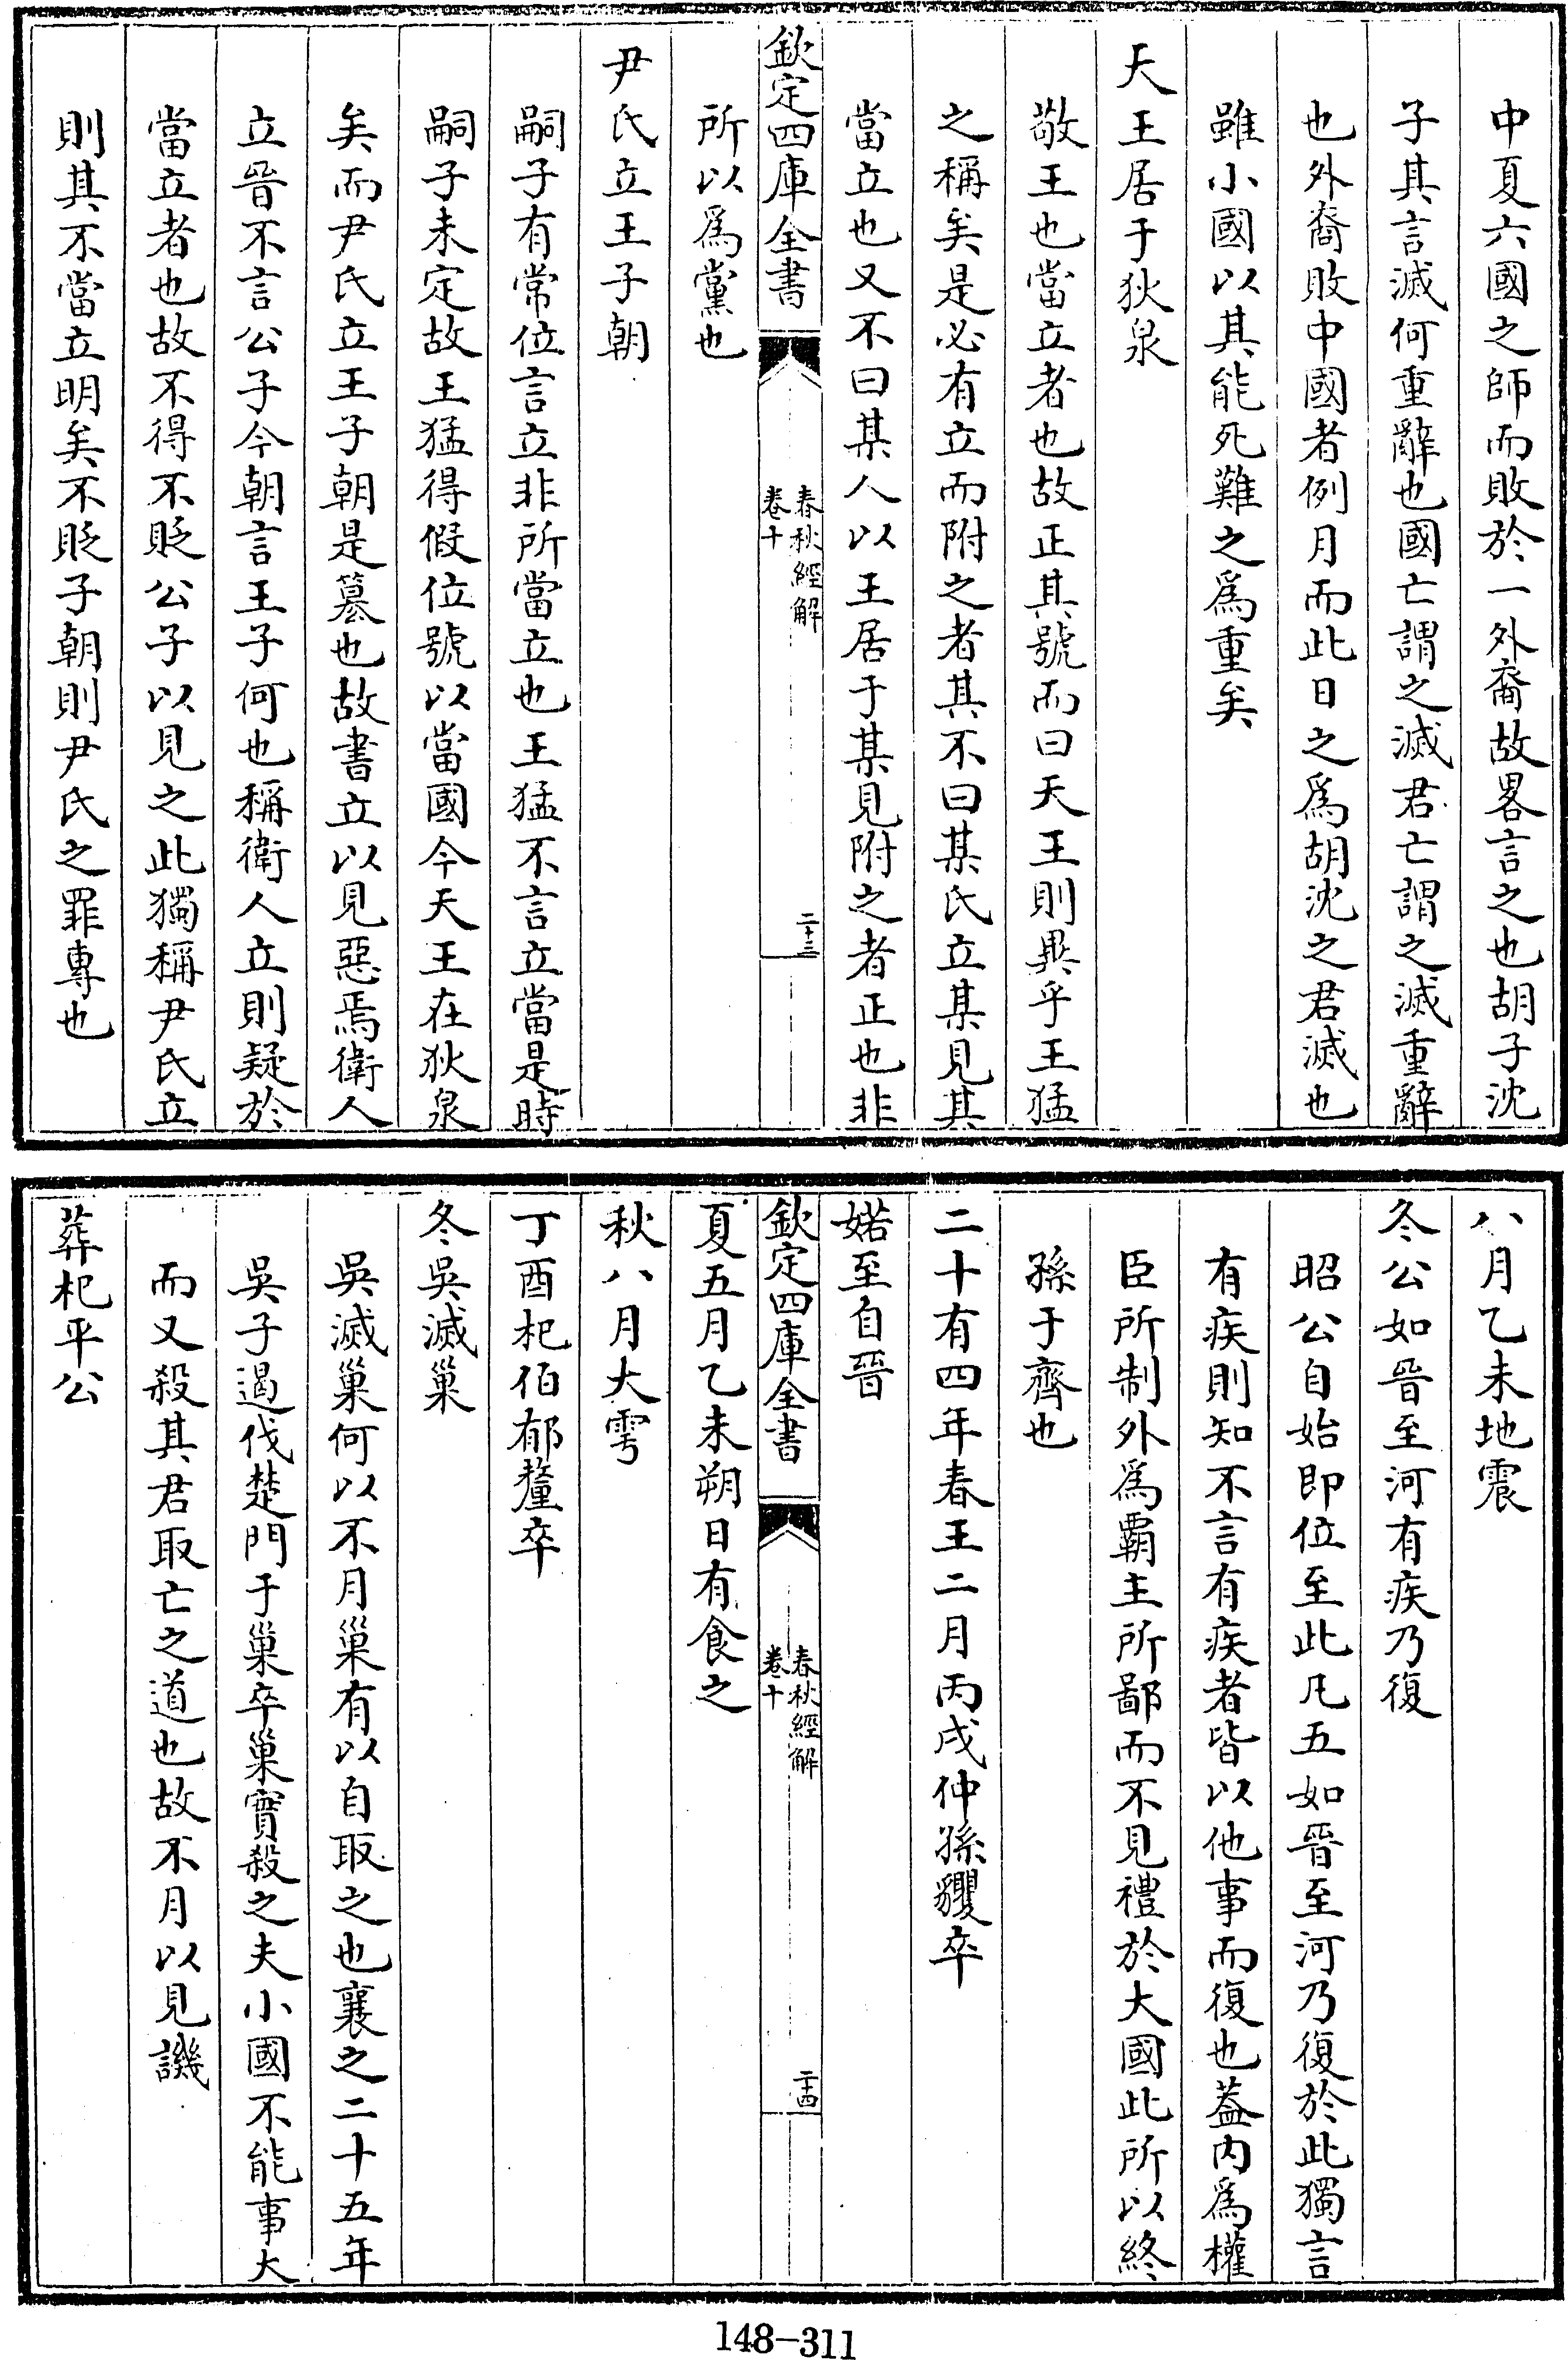 中夏六國之師而敗於一外裔故畧言之也胡子沈
子其言滅何重辭也國亡謂之滅君亡謂之滅重辭
也外裔敗中國者例月而此日之為胡沈之君滅也
雖小國以其能死難之為重矣
天王居于狄泉
敬王也當立者也故正其號而曰天王則異乎王猛
之稱矣是必有立而附之者其不曰某氏立某見其
當立也又不曰某人以王居于某見附之者正也非
欽定四庫全書
春秋經解
卷十
二十三
所以為黨也
尹氏立王子朝
嗣子有常位言立非所當立也王猛不言立當是時
嗣子未定故王猛得假位號以當國今天王在狄泉
矣而尹氏立王子朝是簒也故書立以見惡焉衛人
立晉不言公子今朝言王子何也稱衛人立則疑於
當立者也故不得不貶公子以見之此獨稱尹氏立
則其不當立明矣不貶子朝則尹氏之罪專也
八月乙未地震
冬公如晉至河有疾乃復
昭公自始即位至此凡五如晉至河乃復於此獨言
有疾則知不言有疾者皆以他事而復也蓋內為權
臣所制外為覇主所鄙而不見禮於大國此所以終
孫于齊也
二十有四年春王二月丙戌仲孫貜卒
婼至自晉
欽定四庫全書
春秋經解
卷十
二十四
夏五月乙未朔日有食之
秋八月大雩
丁酉杞伯郁釐卒
冬吳滅巢
吳滅巢何以不月巢有以自取之也襄之二十五年
吳子遏伐楚門于巢卒巢實殺之夫小國不能事大
而又殺其君取亡之道也故不月以見譏
葬杞平公
148-311